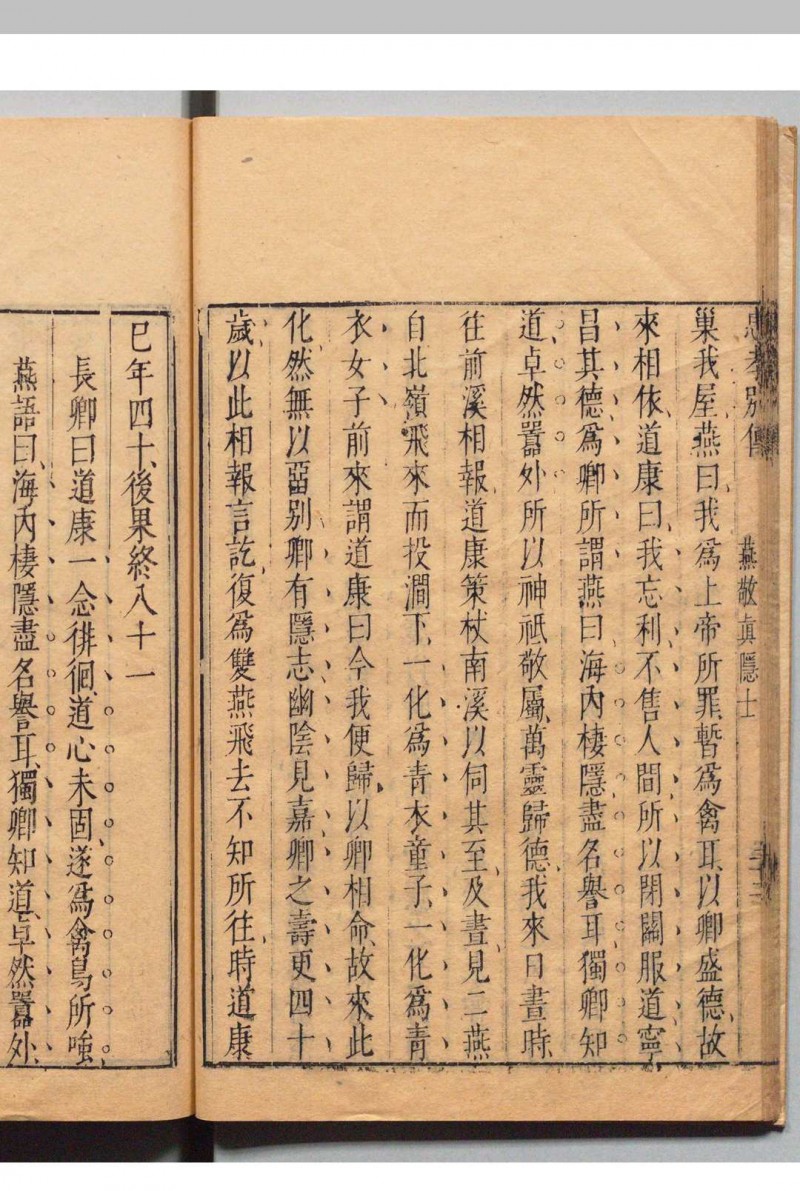 忠孝別傳 燕敬眞隱士
巢我屋燕曰我爲上帝所罪暫爲禽耳以卿盛德故
來相依道康曰我忘利不售人間所以閉關服道寧
昌其德爲卿所謂燕曰海內棲隱盡名譽耳獨卿知
道卓然囂外所以神祇敬屬萬靈歸德我來日晝時
往前溪相報道康策杖南溪以伺其至及晝見二燕
自北嶺飛來而投澗下一化爲青衣童子一化爲青
衣女子前來謂道康曰今我便歸以卿相命故來此
化然無以畱別卿有隱志幽陰見嘉卿之壽更四十
歲以此相報言訖復爲雙燕飛去不知所往時道康
巳年四十後果終八十一
長卿曰道康一念徘徊道心未固遂爲禽鳥所嗤
燕語曰海內棲隱盡名譽耳獨卿知道卓然囂外